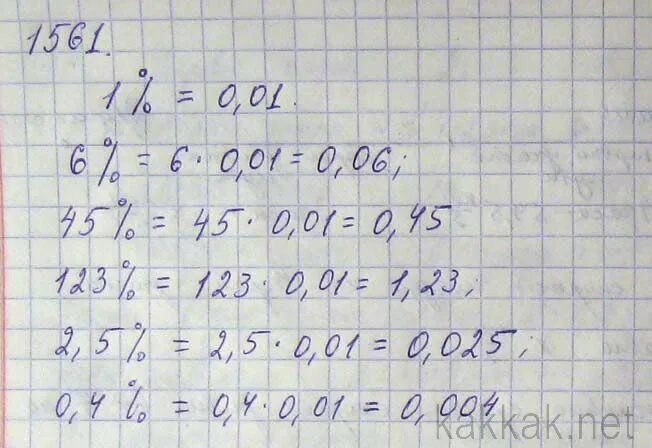 1561.
1% = 0,01.
6% = 6 · 0,01 = 0,06;
45% = 45 · 0,01 = 0,45
123% = 123 · 0,01 = 1,23;
2,5% = 2,5 · 0,01 = 0,025;
0,4% = 0,4 · 0,01 = 0,004
kakkak.net